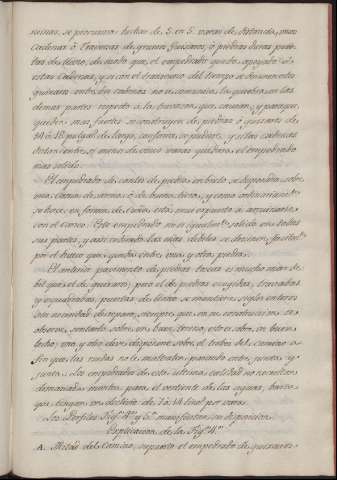 se procuran echar de 5. en 5. varas de distancia, unas
cadenas ó traviesas de gruesos guijarros, ó piedras duras pues-
tas de llano, de modo que, el empedrado quede apoyado á
estas Cadenas, y si con el transcurso del tiempo se desconcerta
entre dos cadenas no se comunica la quiebra en las
demas partes respeto á la trabazon que causan, y para que
queden mas fuertes se construyen de piedras ó guijarros de
14 á 18 pulgad.s de largo, conforme se pudiere, y si las cadenas
distan entre si menos de cinco varas quedará el empedrado
mas solido.
El empedrado de cantos de piedra en bruto se dispondrá sobre
una Cama de arena ó de buena tierra, y como ordinariam.te
se hace en forma de Cuña está muy expuesto a arruinarse
con el carreo. Este empedrado no es igualm.te solido en todas
sus partes, y asi cediendo las mas debiles se desunen facilm.te
por el hueco que queda entre una y otra piedra.
El antiguo pavimento de piedras toscas es mucho mas de-
bil que el de guijarros; pero el de piedras escogidas, tronchadas
y esquadradas, puestas de llano se mantiene siglos enteros
sin necesidad de reparo, siempre que en su construccion se
observe, sentarlo sobre un buen terreno, esto es, sobre un buen
lecho uno, y otro al traves del camino a
fin que las ruedas no le maltraten pasando entre junta y
junta. Los empedrados de esta ultima calidad no necesitan
demasiada para el vertiente de las aguas, basta
que tengan un declivio de 7 á 14 lineas por vara.
Los Perfiles Fig.s 4.ª y 5.ª manifiestan su disposicion.
Explicacion de la Fig.ª 4.ª
A. Mitad del Camino, supuesto el empedrado de guijarros